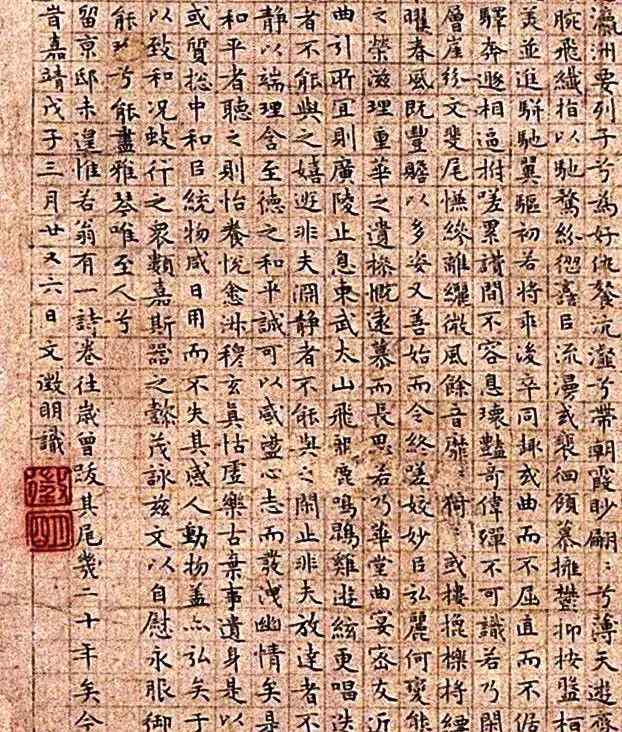 瀛洲要列子兮為好仇餐沆瀣兮帶朝霞眇翩〻兮薄天遊齊
腕飛纖指以馳騖紛㒊譶㠯流漫或裴徊顧慕擁鬱抑按盤桓
美並進駢馳翼驅初若將乖後卒同趣或曲而不屈直而不倨
驛奔遯相逼拊嗟累讚間不容息瓌豔奇偉殫不可識若乃閑
層崖紛文斐尾慊縿離纚微風餘音靡〻猗〻或摟㧢櫟捋縹
曜春風既豐贍以多姿又善始而令終嗟姣妙㠯弘麗何變態
之榮滋理重華之遺操慨遠慕而長思若乃華堂曲宴密友近
曲引所宜則廣陵止息東武太山飛龍鹿鳴鵾雞遊絃更唱迭
者不能與之嬉遊非夫淵靜者不能與之閑止非夫放達者不
靜以端理含至德之和平誠可以感盪心志而發洩幽情矣是
和平者聽之則怡養悅愈淑穆玄真恬虛樂古棄事遺身是以
或質揔中和㠯統物咸日用而不失其感人動物盖亦弘矣于
以致和況蚑行之眾類嘉斯器之懿茂詠茲文以自慰永服御
能珎兮能盡雅琴唯至人兮
留京邸未遑惟若翁有一詩卷往歲曾跋其尾幾二十年矣今
旹嘉靖戊子三月廿又六日文徵明識
徵明